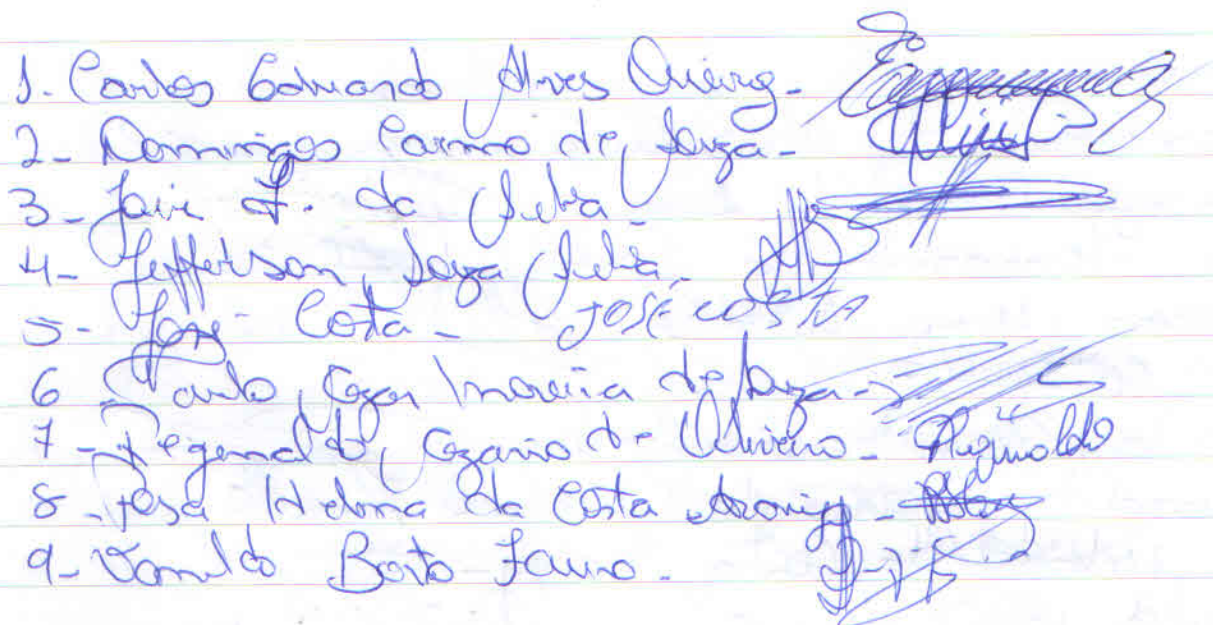 1- Carlos Eduardo Alves Queiroz-
2- Domingos Carmo de Souza-
3- Jair F. da Silva-
4- Jefferson Souza Silva-
5- José Costa- JOSÉ COSTA
6 Paulo Cezar Moreira de Souza-
7- Reginaldo Cezario de Oliveira- Reginaldo
8- Rosa Helena da Costa
9- Vanildo Bosto